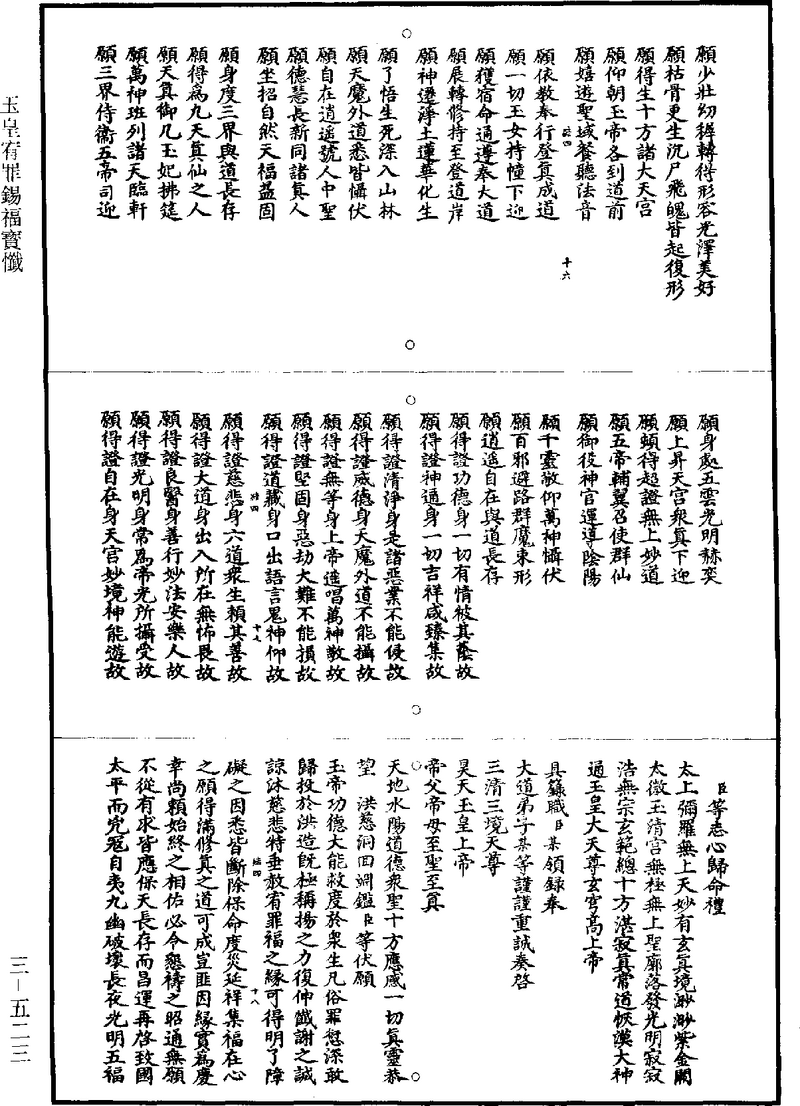 玉皇宥罪錫福寶懺
願少壯幼稺轉得形容光澤美好
願枯骨更生沉尸飛魄皆起復形
願得生十方諸大天宮
願仰朝玉帝各到道前
願嬉遊聖域餐聽法音
十六
願依教奉行登真成道
願一切玉女持幢下迎
願獲宿命通遵奉大道
願展轉修持至登道岸
願神遷淨土蓮華化生
願了悟生死深入山林
願天魔外道悉皆懾伏
願自在逍遙號人中聖
願德慧長新同諸真人
願坐招自然天福益固
願身度三界與道長存
願得為九天真仙之人
願天真御几玉妃拂筵
願萬神班列諸天臨軒
願三界侍衛五帝司迎
願身處五雲光明赫奕
願上昇天宮眾真下迎
願頓得超證無上妙道
願五帝輔翼召使群仙
願御役神官運導陰陽
願千靈敬仰萬神懾伏
願百邪避路群魔束形
願逍遙自在與道長存
願得證功德身一切有情被其蔭故
願得證神通身一切吉祥咸臻集故
願得證清淨身是諸惡業不能侵故
願得證威德身天魔外道不能攝故
願得證無等身上帝連唱萬神敬故
願得證堅固身惡劫大難不能損故
願得證道藏身口出語言鬼神仰故
願得證慈悲身六道眾生賴其善故
願得證大道身出入所在無怖畏故
願得證良醫身善行妙法安樂人故
願得證光明身常為帝光所攝受故
願得證自在身天宮妙境神能遊故
臣等志心歸命禮
太上彌羅無上天妙有玄真境渺渺紫金闕
太微玉清宮無極無上聖廓落發光明寂寂
浩無宗玄範總十方湛寂真常道恢漠大神
通玉皇大天尊玄穹高上帝
具錄職臣某領錄奉
大道弟子某等謹謹重誠奏啓
三清三境天尊
昊天玉皇上帝
帝父帝母至聖至真
天地水陽道德眾聖十方應感一切真靈恭
望　洪慈洞回淵鑑臣等伏願
玉帝功德大能救度於眾生凡俗罪愆深敢
歸投於洪造既極稱揚之力復伸懺謝之誠
諒沐慈悲特垂赦宥罪福之緣可得明了障
礙之因悉皆斷除保命度災延祥集福在心
之願得滿修真之道可成豈匪因緣實為慶
幸尚賴始終之相佑必令懇禱之昭通無願
不從有求皆應保天長存而昌運再啓致國
太平而兇寇自夷九幽破壞長夜光明五福
三－五二三